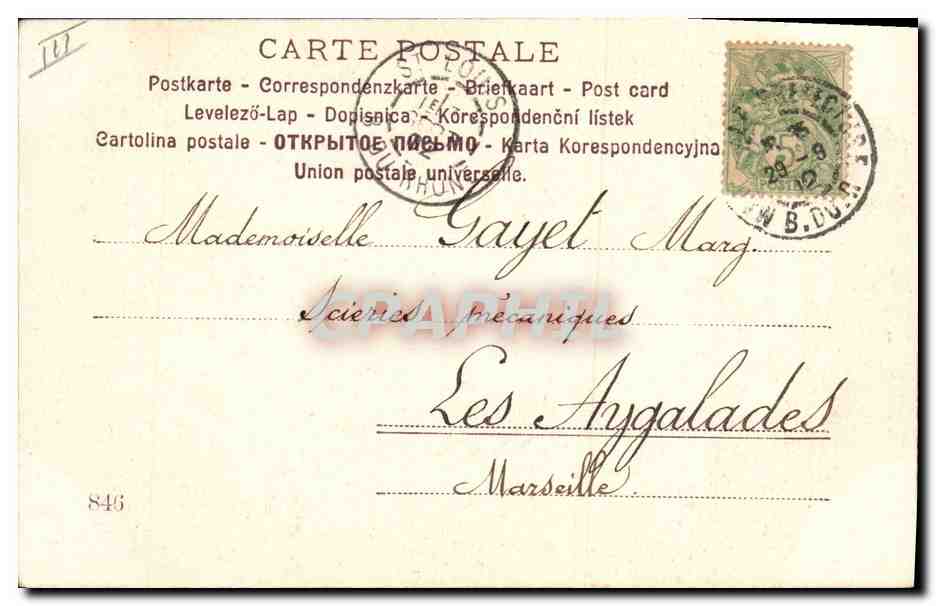 III
CARTE POSTALE
Postkarte - Correspondenzkarte - Briefkaart - Post card
Levelező-Lap - Dopisnica - Korespondenční lístek
Cartolina postale - ОТКРЫТОЕ ПИСЬМО - Karta Korespondencyjna
Union postale universelle.
ST LOUIS
B. DU RHÔNE
29 - 9
02
B. DU R
5
POSTES
Mademoiselle Gayet Marg.
Scieries mécaniques
CPAPHIL
Les Aygalades
Marseille.
846